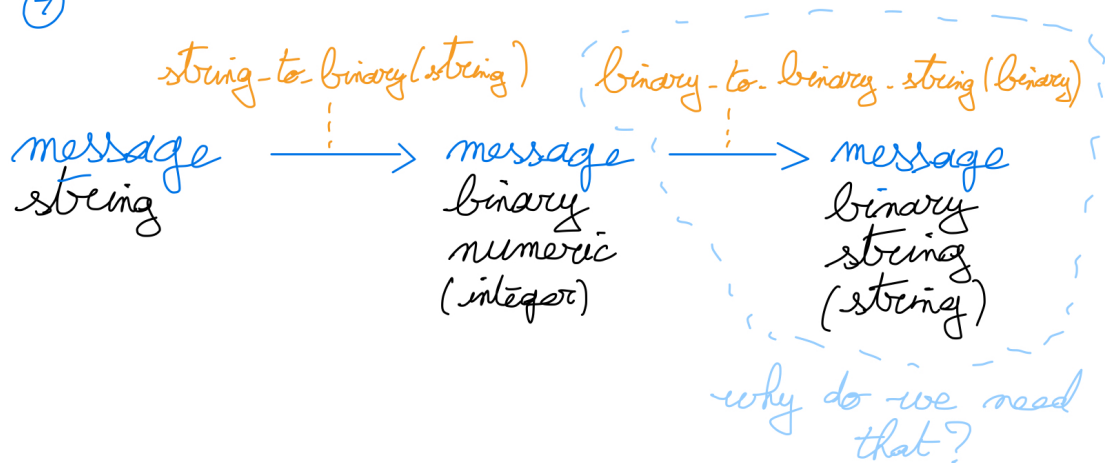 string_to_binary(string)
binary_to_binary_string(binary)
message
string
message
binary
numeric
(integer)
message
binary
string
(string)
why do we need
that?